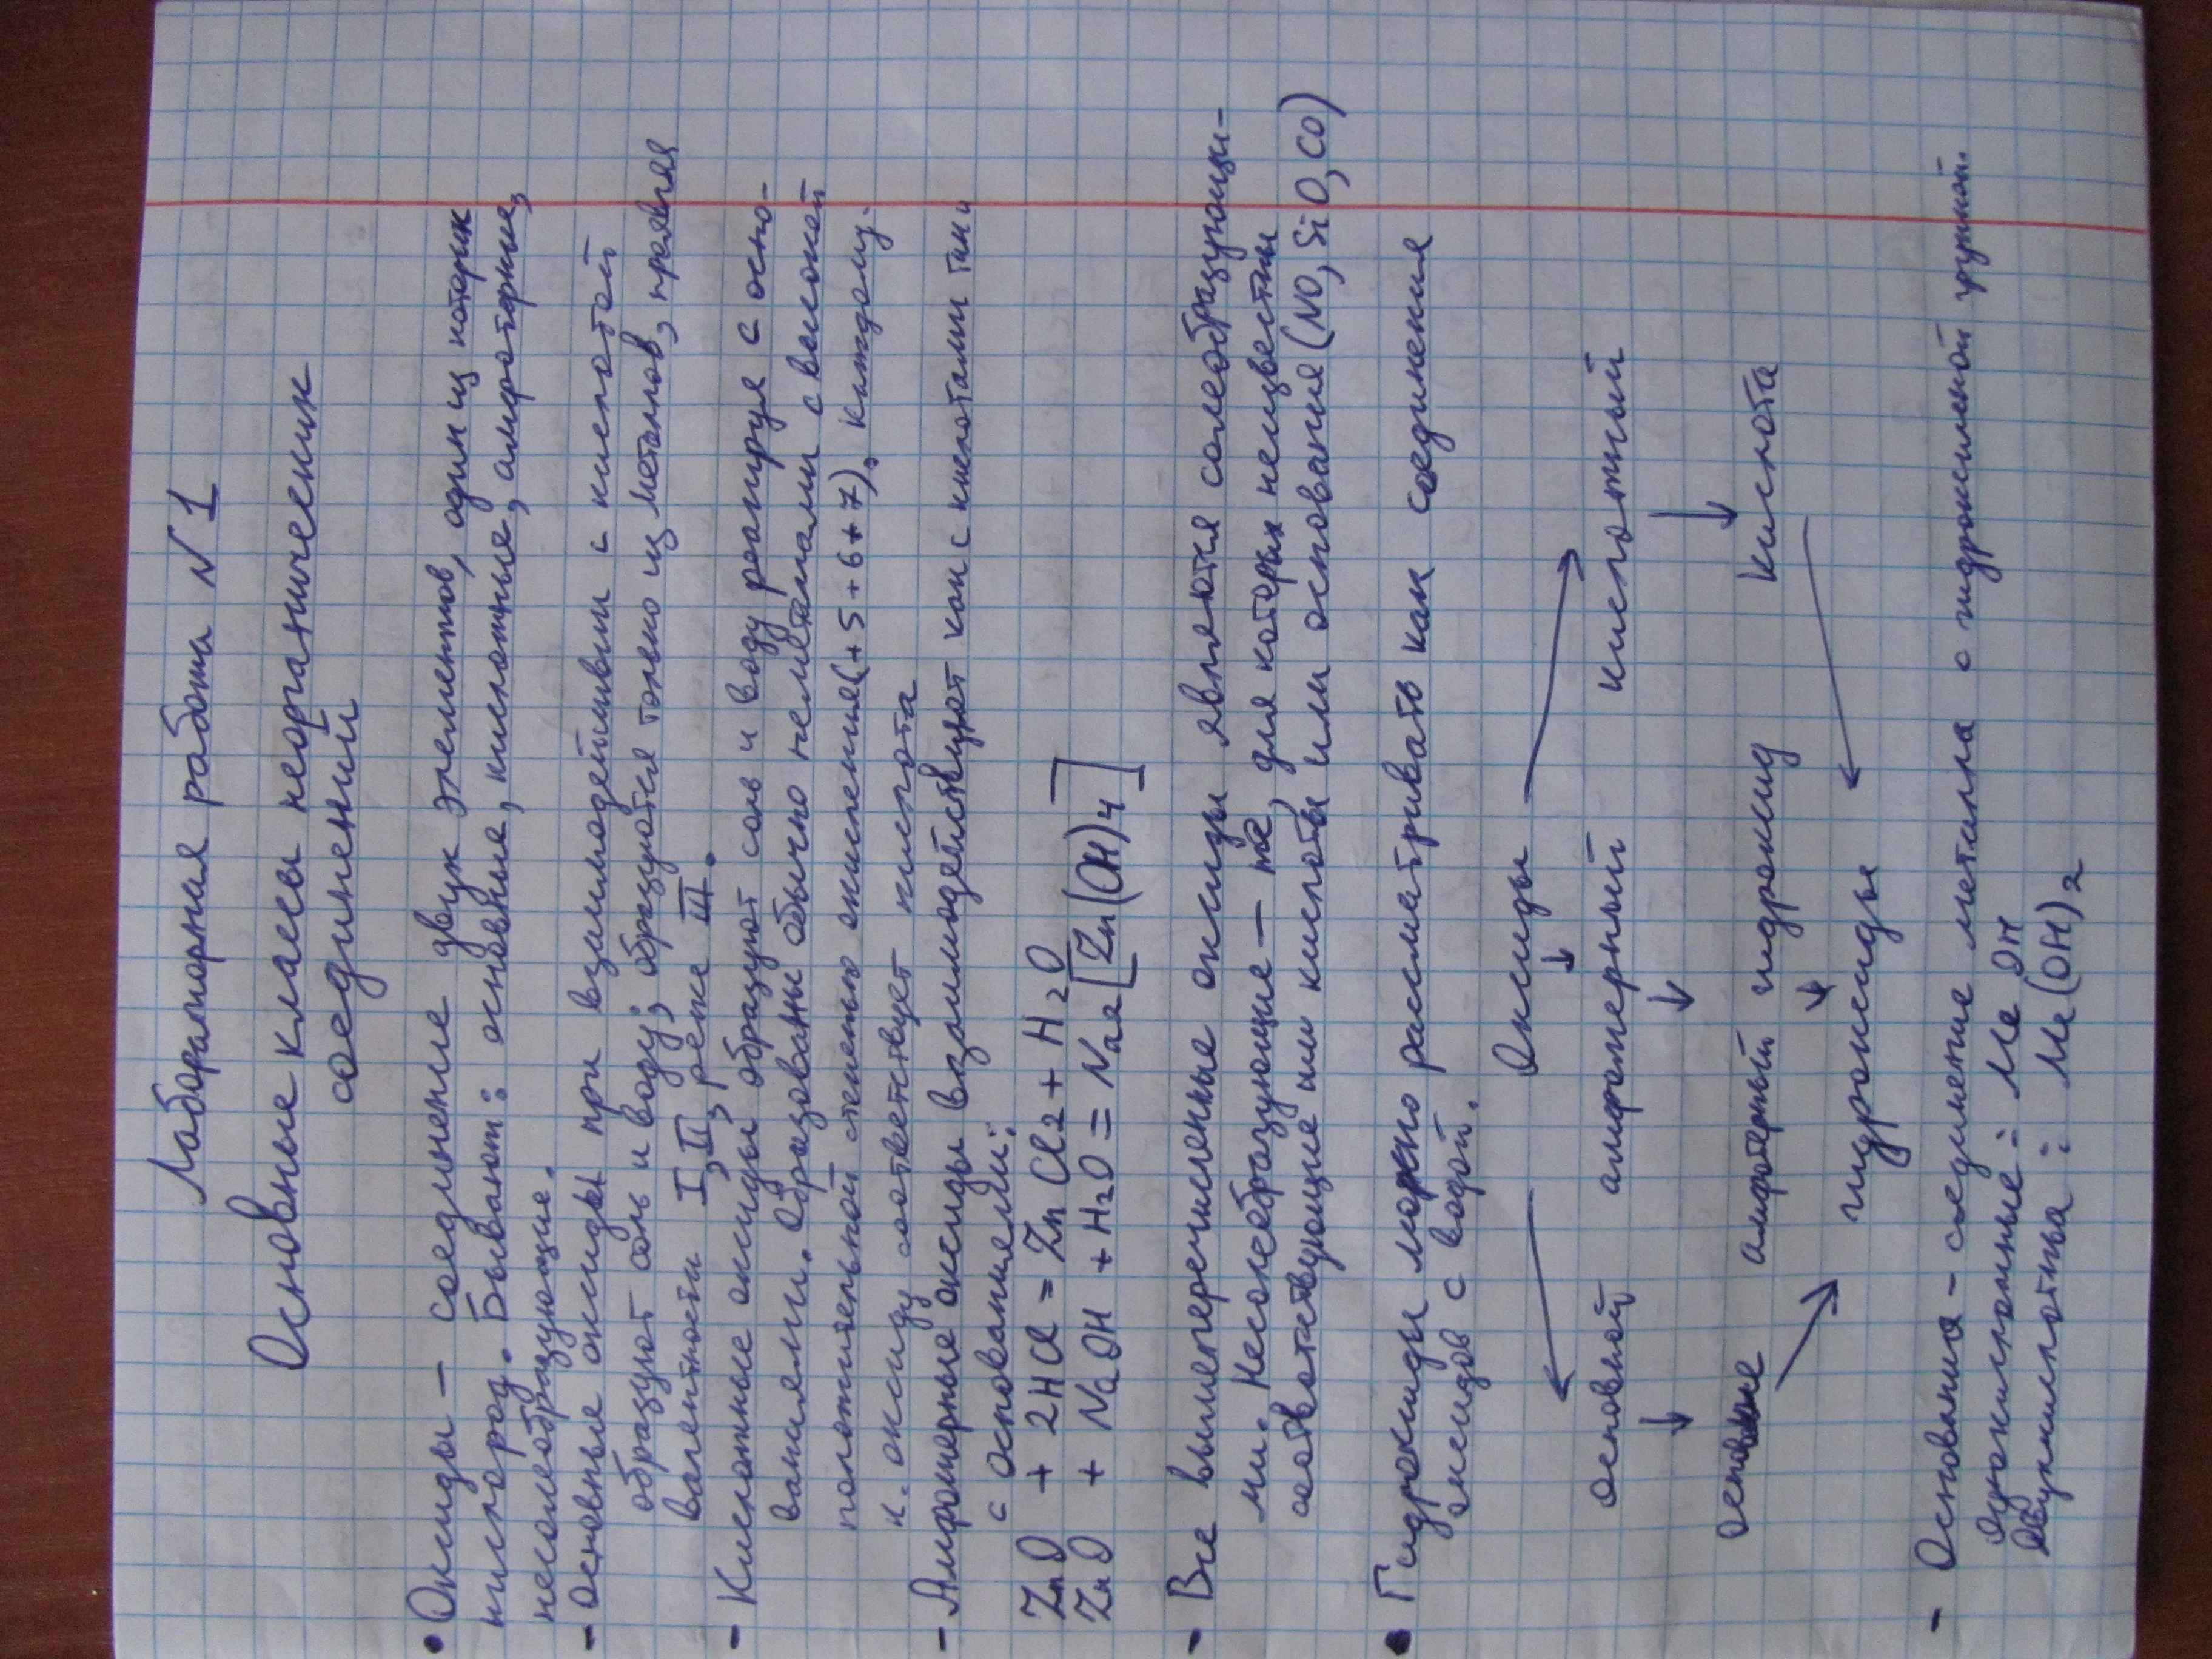 Лабораторная работа № 1
Основные классы неорганических
соединений
• Оксиды – соединение двух элементов, один из которых
кислород. Бывают: основные, кислотные, амфотерные,
несолеобразующие.
- Основные оксиды при взаимодействии с кислотой
образуют соль и воду; образуются только из металлов, проявляя
валентности I, II, реже III.
- Кислотные оксиды образуют соль и воду реагируя с осно-
ваниями. Образованы обычно неметаллами с высокой
положительной степенью окисления (+5 +6 +7). Каждому
к. оксиду соответствует кислота
- Амфотерные оксиды взаимодействуют как с кислотами так и
с основаниями:
ZnO + 2HCl = ZnCl2 + H2O
ZnO + NaOH + H2O = Na2[Zn(OH)4]
- Все вышеперечисленные оксиды являются солеобразующи-
ми. Несолеобразующие – те, для которых неизвестны
соответствующие им кислоты или основания (NO, SiO, CO)
• Гидроксиды можно рассматривать как соединения
оксидов с водой.
Оксиды
основной амфотерный кислотный
основные амфотерный гидроксид кислота
гидроксиды
- Основания – соединение металла с гидроксильной группой.
Однокислотные: MeOH
Двукислотные: Me(OH)2